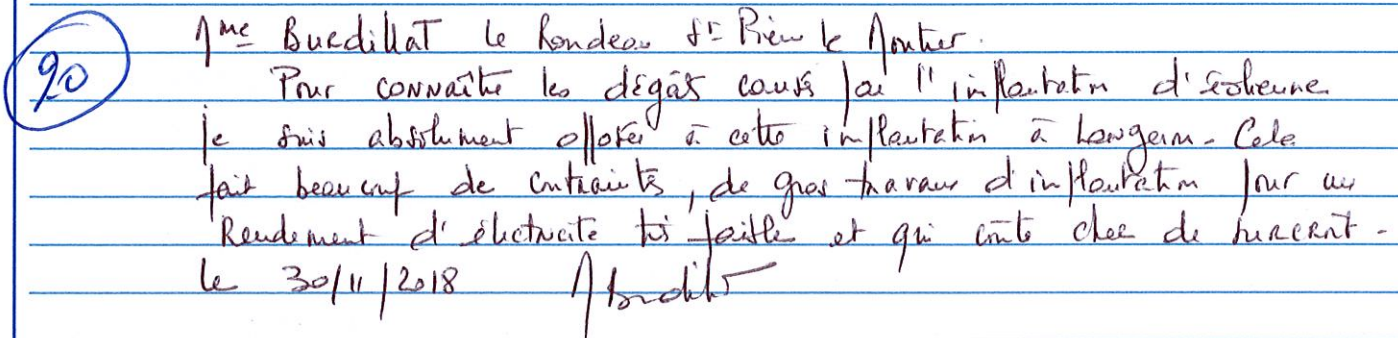 90
Mme Burdillat le Rondeau St Pierre le Moutier.
Pour connaître les dégâts causés par l'implantation d'éolienne
je suis absolument opposée à cette implantation à Langeron. Cela
fait beaucoup de contraintes, de gros travaux d'implantation pour un
Rendement d'électricité très faible et qui coûte cher de surcroît.
le 30/11/2018